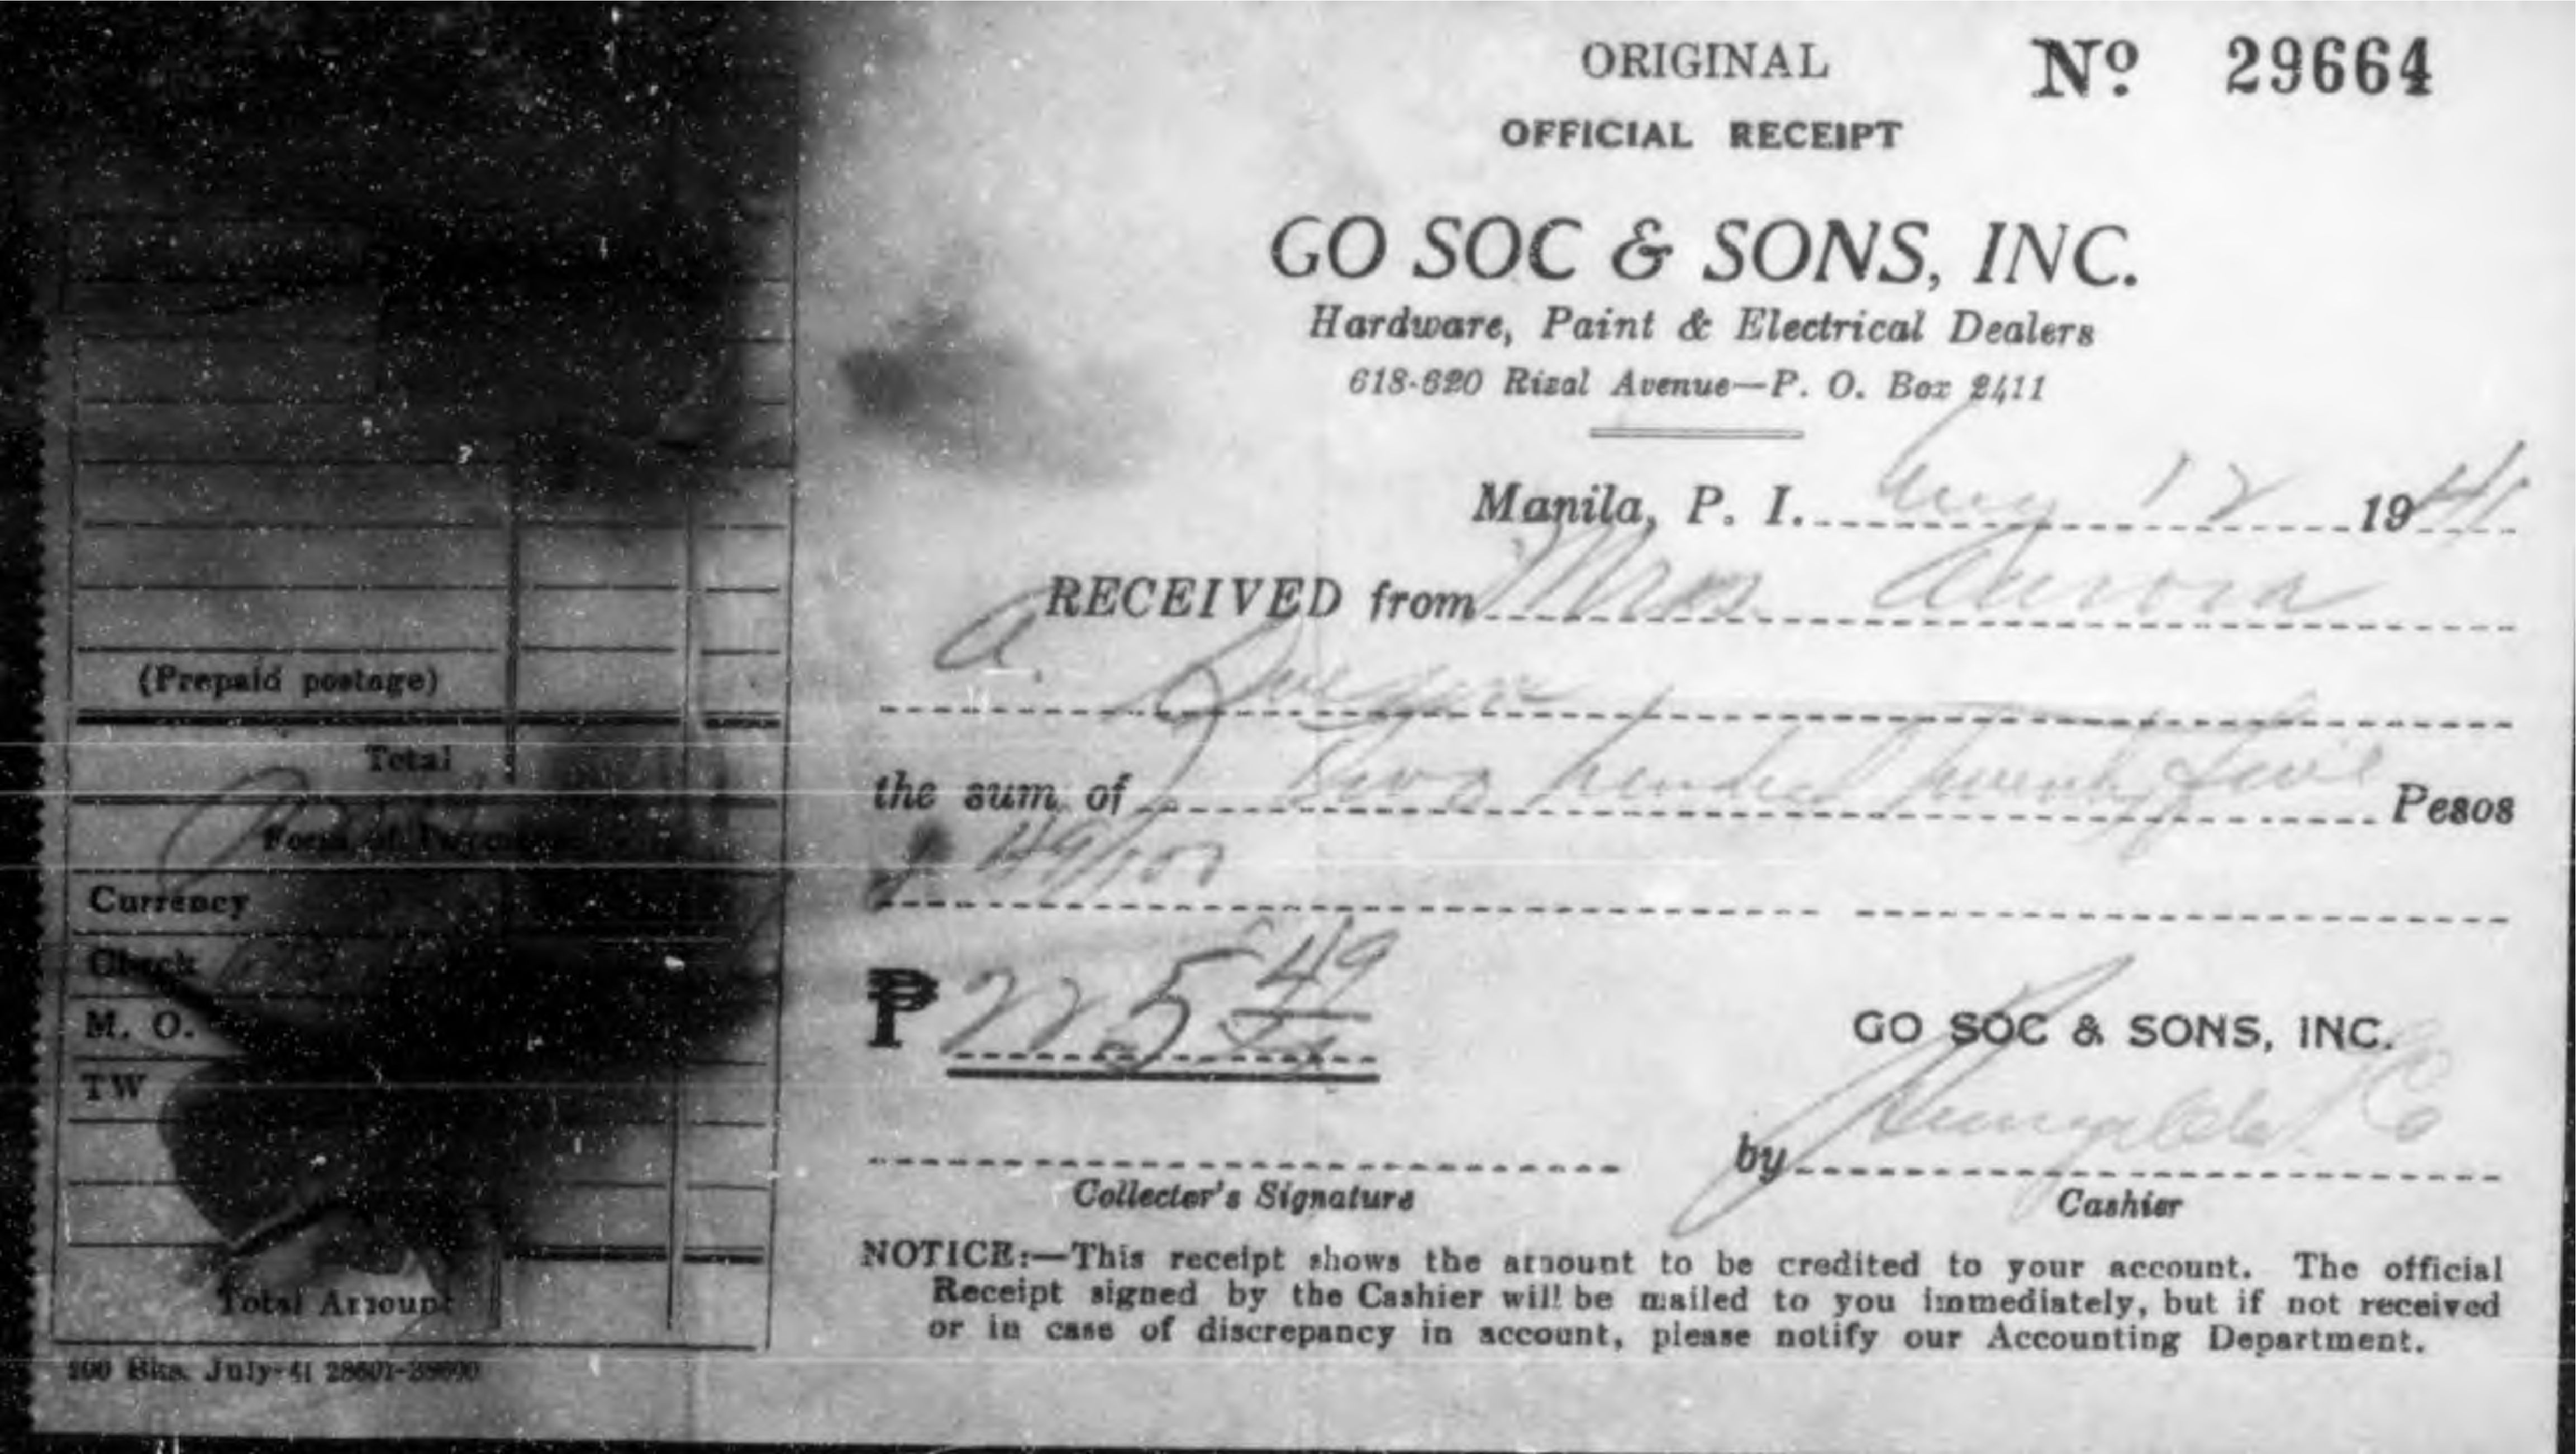 ORIGINAL
Nº 29664
OFFICIAL RECEIPT
GO SOC & SONS, INC.
Hardware, Paint & Electrical Dealers
618-620 Rizal Avenue—P. O. Box 2411
Manila, P. I. Aug 12 1941
RECEIVED from Mrs. Aurora
A.
the sum of Two hundred twenty five Pesos
& 49/100
₱ 225 49
GO SOC & SONS, INC.
by
Collector's Signature
Cashier
NOTICE:—This receipt shows the amount to be credited to your account. The official
Receipt signed by the Cashier will be mailed to you immediately, but if not received
or in case of discrepancy in account, please notify our Accounting Department.
(Prepaid postage)
Total
Form of
Currency
Check
M. O.
TW
Total Amount
July-41